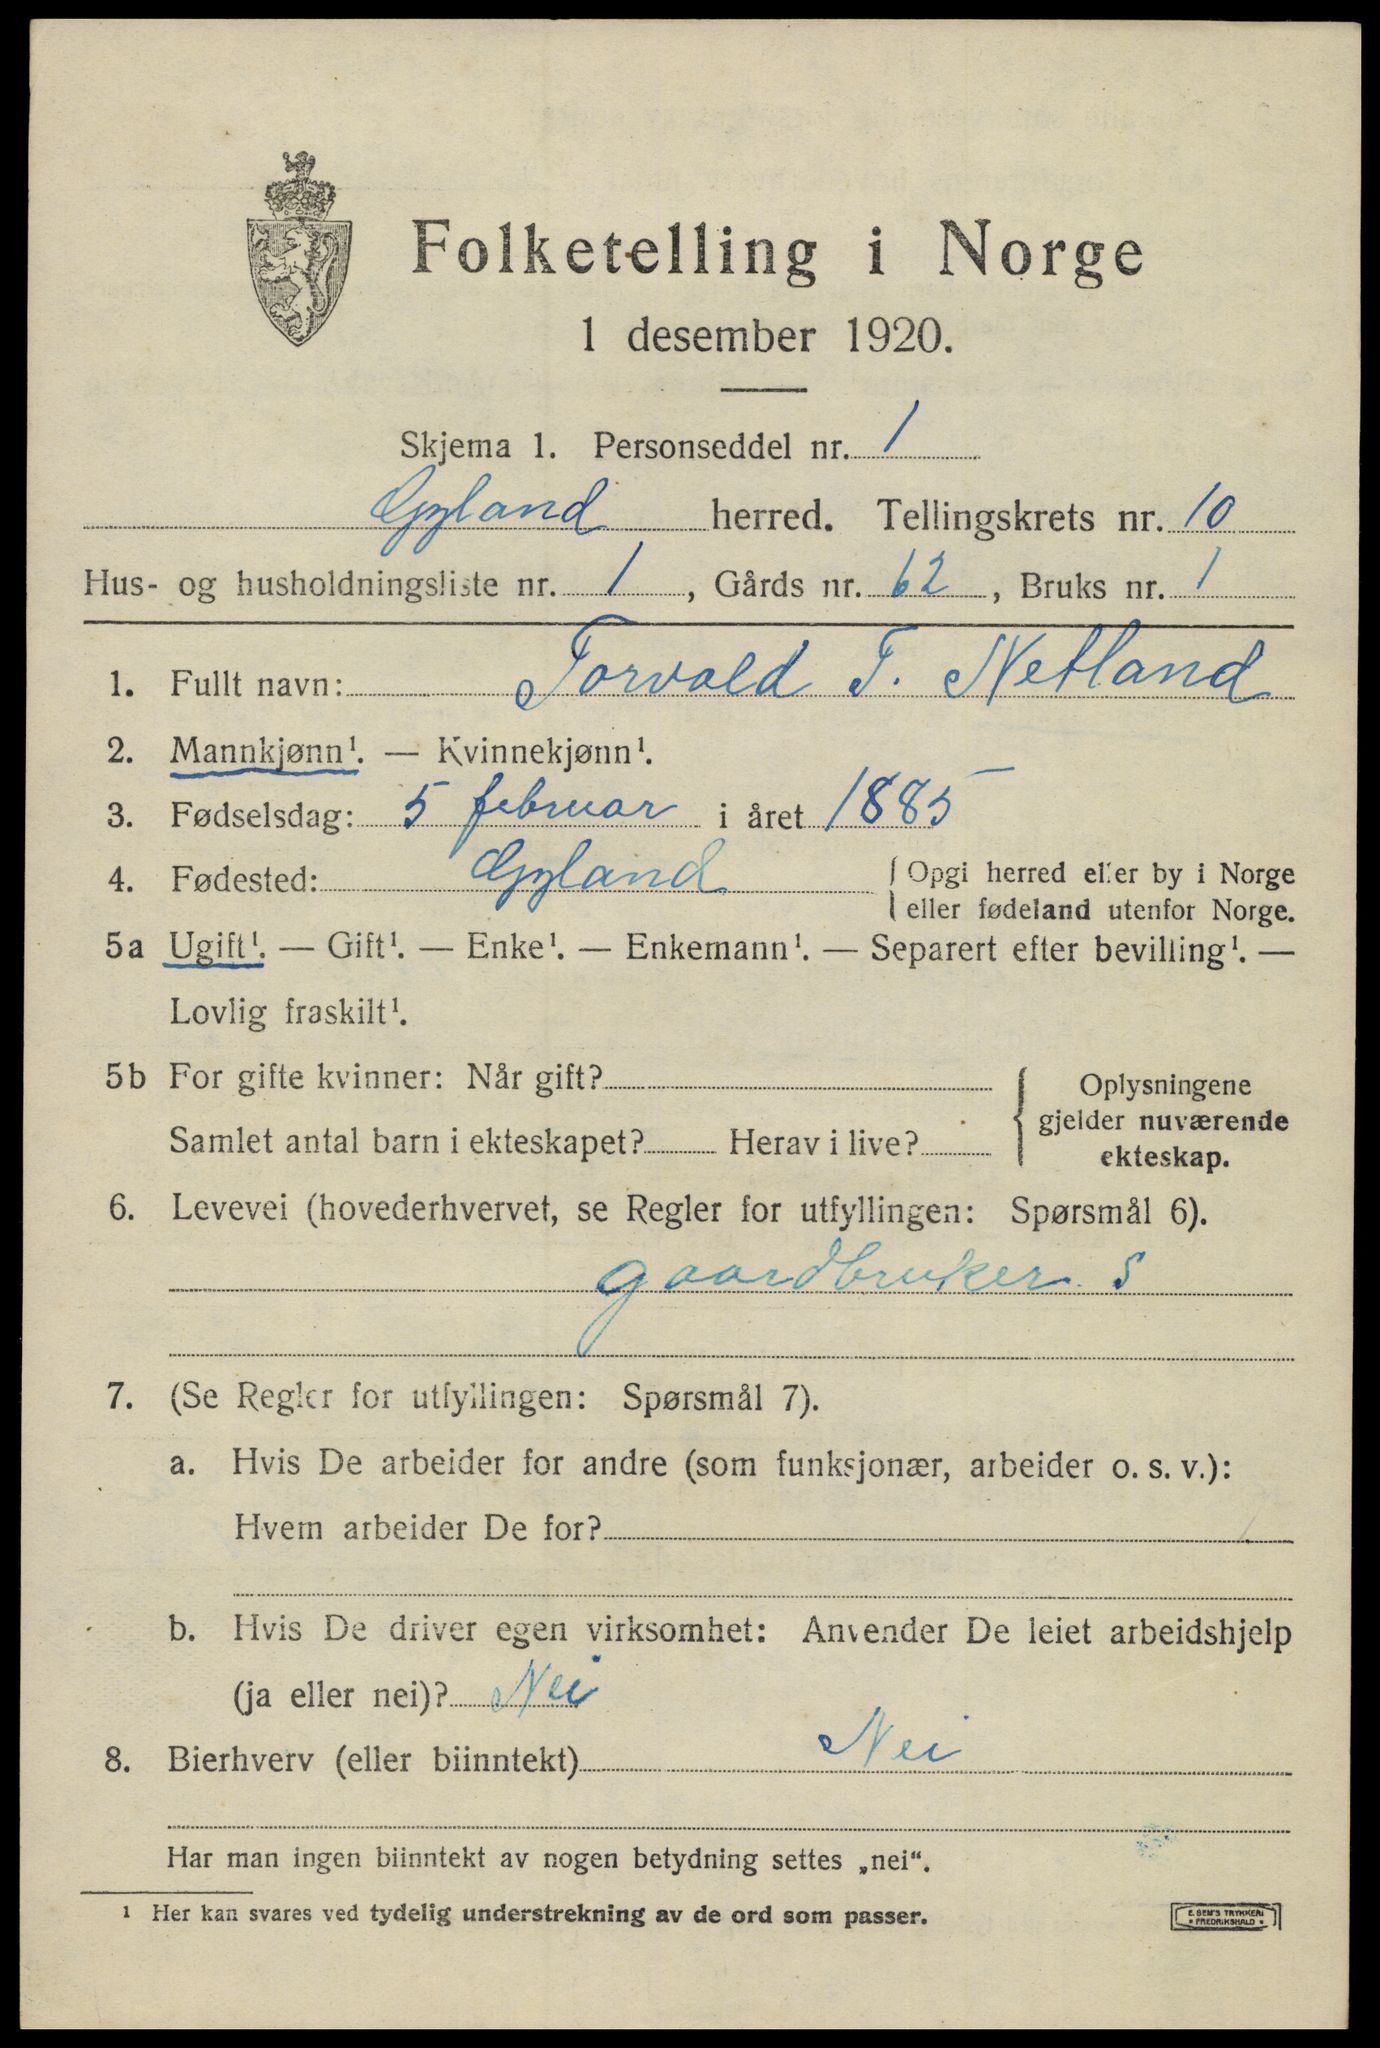 Folketelling i Norge
1 desember 1920.
Skjema 1. Personseddel nr. 1
Gyland herred. Tellingskrets nr. 10
Hus- og husholdningsliste nr. 1, Gårds nr. 62, Bruks nr. 1
1. Fullt navn: Torvald T. Netland
2. Mannkjønn¹. — Kvinnekjønn¹.
3. Fødselsdag: 5 februar i året 1885
4. Fødested: Gyland { Opgi herred eller by i Norge
eller fødeland utenfor Norge.
5a Ugift¹. — Gift¹. — Enke¹. — Enkemann¹. — Separert efter bevilling¹. —
Lovlig fraskilt¹.
5b For gifte kvinner: Når gift?
Samlet antal barn i ekteskapet? Herav i live?
{ Oplysningene
gjelder nuværende
ekteskap.
6. Levevei (hovederhvervet, se Regler for utfyllingen: Spørsmål 6).
gaardbruker S
7. (Se Regler for utfyllingen: Spørsmål 7).
a. Hvis De arbeider for andre (som funksjonær, arbeider o. s. v.):
Hvem arbeider De for?
b. Hvis De driver egen virksomhet: Anvender De leiet arbeidshjelp
(ja eller nei)? Nei
8. Bierhverv (eller biinntekt) Nei
Har man ingen biinntekt av nogen betydning settes „nei“.
¹ Her kan svares ved tydelig understrekning av de ord som passer.
E. SEM'S TRYKKERI
• FREDRIKSHALD •